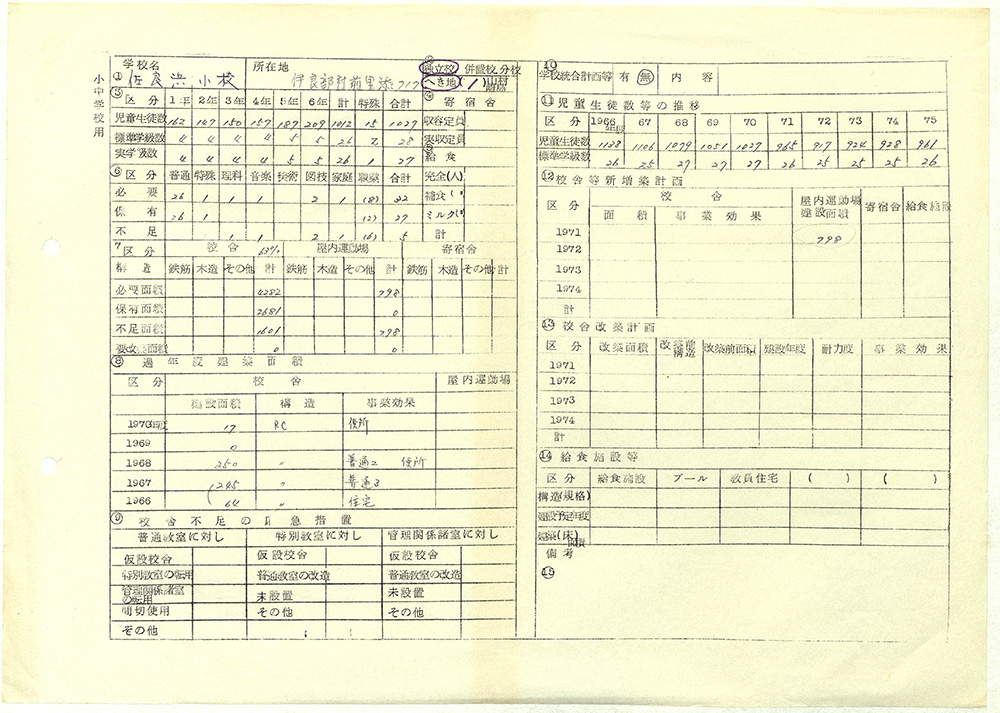 小中学校用
学校名 所在地 独立校 併置校 分校
① 佐良浜小校 伊良部村前里添 へき地 ( 1 )
③ 区分 1年 2年 3年 4年 5年 6年 計 特殊 合計 寄宿舎
児童生徒数 162 147 150 157 187 209 1012 15 1027 収容定員
標準学級数 〃 〃 〃 〃 5 5 26 2 28 実収定員
実学級数 4 4 4 4 5 5 26 1 27 給食
⑥ 区分 普通 特殊 理科 音楽 美術 図技 家庭 職業 合計 完全(人)
必要 26 1 1 1 2 1 (8) 32 補食(〃)
保有 26 1 (2) 27 ミルク(〃)
不足 1 1 2 1 (6) 5 計
7 区分 校舎 63% 屋内運動場 寄宿舎
構造 鉄筋 木造 その他 計 鉄筋 木造 その他 計 鉄筋 木造 その他 計
必要面積 4282 798
保有面積 2681 0
不足面積 1601 798
要改築面積 0 0
⑧ 過年度建築面積
区分 校舎 屋内運動場
建設面積 構造 事業効果
1970年度 17 RC 便所
1969 0
1968 250 〃 普通2 便所
1967 245 〃 普通3
1966 64 〃 住宅
⑨ 校舎不足の応急措置
普通教室に対し 特別教室に対し 管理関係諸室に対し
仮設校舎 仮設校舎 仮設校舎
特別教室の転用 普通教室の改造 普通教室の改造
管理関係諸室の転用 未設置 未設置
間切使用 その他 その他
その他
⑩
学校統合計画等 有 無 内容
⑪ 児童生徒数等の推移
区分 1966年度 67 68 69 70 71 72 73 74 75
児童生徒数 1138 1106 1079 1051 1027 965 917 924 928 961
標準学級数 26 25 27 27 27 26 25 25 25 26
⑫ 校舎等新増築計画
区分 校舎 屋内運動場建設面積 寄宿舎 給食施設
面積 事業効果
1971 798
1972
1973
1974
計
⑬ 校舎改築計画
区分 改築面積 改築前構造 改築前面積 建設年度 耐力度 事業効果
1971
1972
1973
1974
計
⑭ 給食施設等
区分 給食施設 プール 教員住宅 ( ) ( )
構造(規格)
建設予定年度
建築(床)面積
備考
⑮